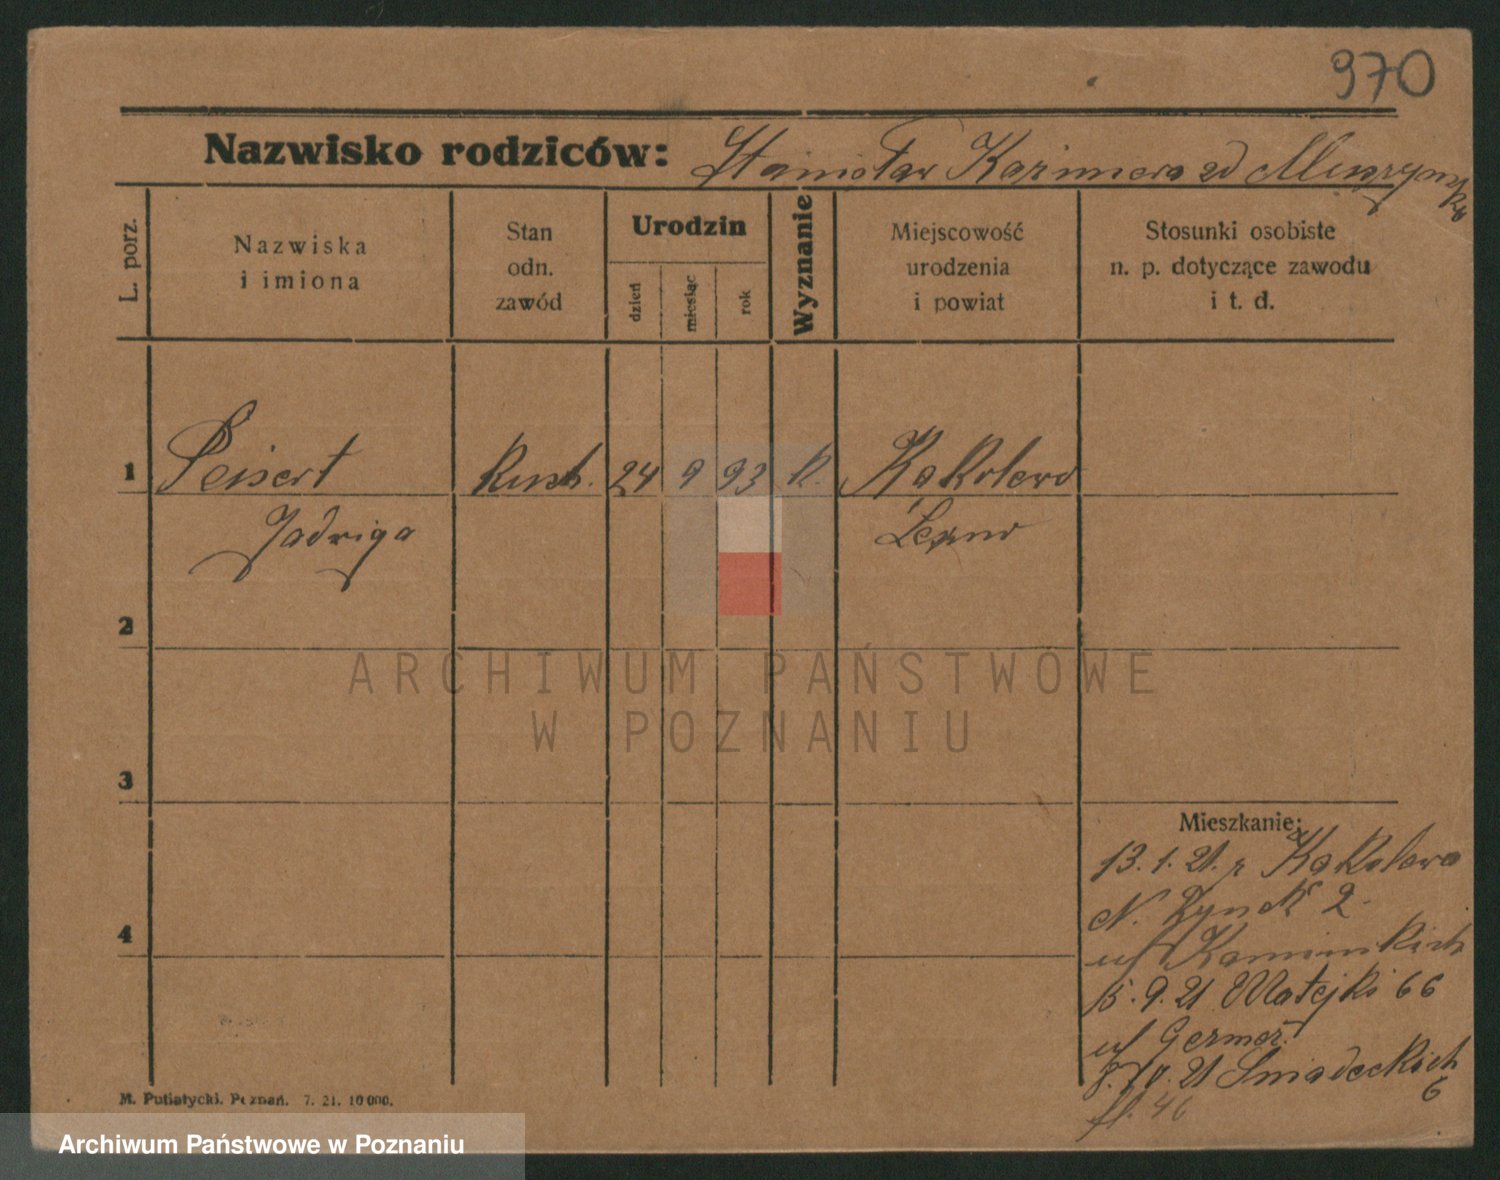 970
Nazwisko rodziców: Stanisław Kazimiera zd Muszyńska
L. porz.
Nazwiska
i imiona
Stan
odn.
zawód
Urodzin
dzień
miesiąc
rok
Wyznanie
Miejscowość
urodzenia
i powiat
Stosunki osobiste
n. p. dotyczące zawodu
i t. d.
1 Peisert 24 9 93 k. Kąkolewo
Jadwiga Leszno
2
ARCHIWUM PAŃSTWOWE
W POZNANIU
3
Mieszkanie:
13. 1. 21. z Kąkolewa
4
N. Rynek 2
u/ Kaminskich
15. 9. 21 Matejki 66
u/ Germer.
21 Sniadeckich
6
46
M. Putiatycki. Poznań. 7. 21. 10 000.
Archiwum Państwowe w Poznaniu